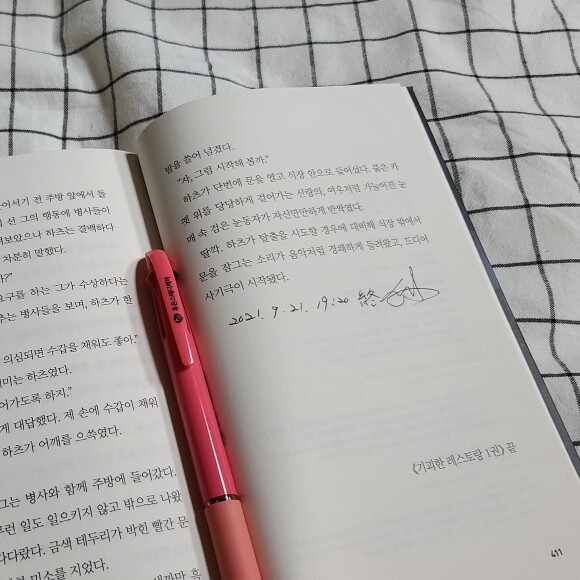 어서기 전 주방 앞에서 돌
선 그의 행동에 병사들이
여보았으나 하츠는 결백하다
차분히 말했다.
가?"
요구를 하는 그가 수상하다는
주는 병사들을 보며, 하츠가 한
의심되면 수갑을 채워도 좋아."
미는 하츠였다.
어가도록 하지."
게 대답했다. 제 손에 수갑이 채워
하츠가 어깨를 으쓱였다.
그는 병사와 함께 주방에 들어갔다.
런 일도 일으키지 않고 밖으로 나왔
다다랐다. 금색 테두리가 박힌 빨간 문
미소를 지었다.
새까마
밤을 쓸어 넘겼다.
"자, 그럼 시작해 볼까."
하츠가 단번에 문을 열고 식장 안으로 들어섰다. 붉은 카
펫 위를 당당하게 걸어가는 신랑의, 여우처럼 가늘어진 눈
매 속 검은 눈동자가 자신만만하게 반짝였다.
딸깍. 하츠가 탈출을 시도할 경우에 대비해 식장 밖에서
문을 잠그는 소리가 음악처럼 경쾌하게 들려왔고, 드디어
사기극이 시작됐다.
2021. 9. 21. 19:20 終
《기괴한 레스토랑 1권》 끝
411